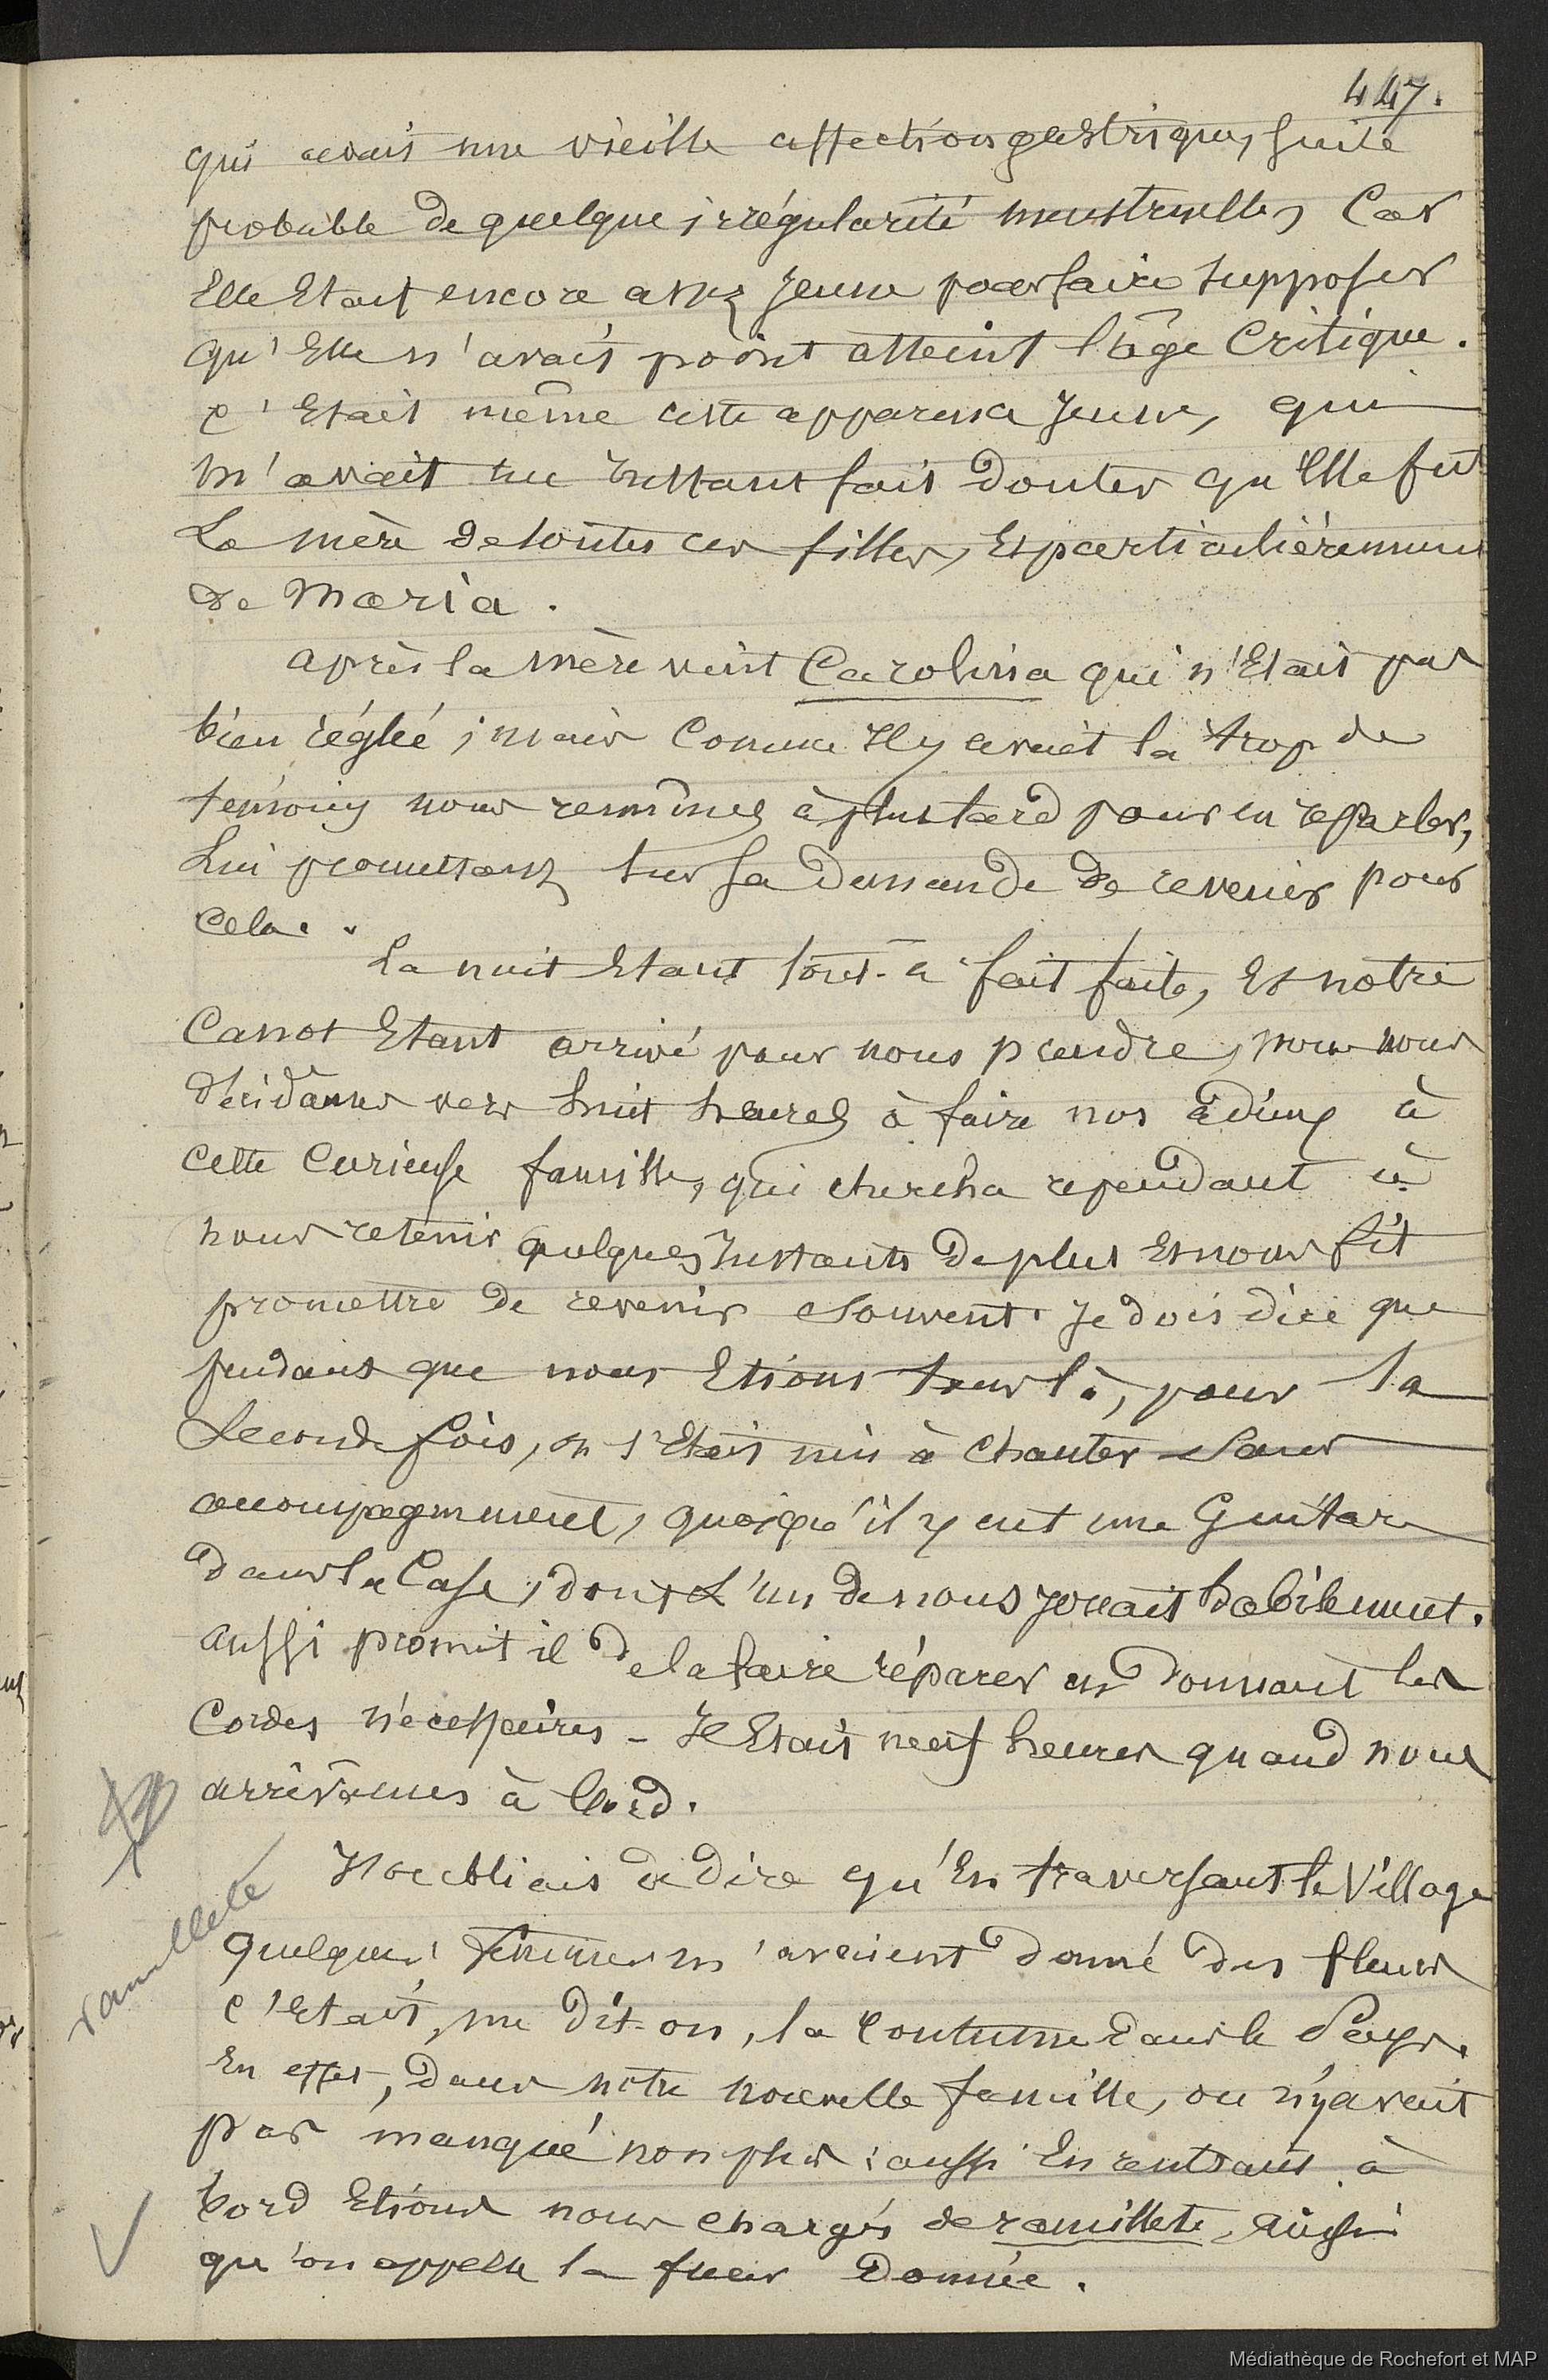 447.
qui avait une vieille affection gastrique, suite
probable de quelque irrégularité menstruelle, Car
Elle Etait encore assez Jeune pour faire supposer
qu'Elle n'avait point atteint l'âge Critique.
C'Etait même cette apparence Jeune, qui
m'avait un Instant fait Douter qu'Elle fut
La mère de toutes ces filles, Et particulièrement
de Maria.
après la mère vint Carolina qui n'Etait pas
bien réglée ; mais Comme Il y avait là trop de
temoins nous remîmes à plus tard pour en reparler,
Lui promettant sur sa Demande de revenir pour
cela.
La nuit Etant tout-à fait faite, Et notre
Canot Etant arrivé pour nous prendre, nous nous
décidâmes vers huit heures à faire nos adieux à
cette Curieuse famille, qui chercha cependant à
nous retenir quelques Instants de plus Et nous fit
promettre de revenir souvent. Je dois dire que
pendant que nous Etions tous là, pour la
Seconde fois, on s'Etait mis à Chanter sans
accompagnement, quoiqu'il y eut une Guitare
dans la Case, dont L'un de nous Jouait habilement.
aussi promit il de la faire réparer en Donnant les
Cordes nécessaires - Il Etait neuf heures quand nous
arrivâmes à bord.
J'oubliais de dire qu'En traversant le Village
quelques femmes m'avaient donné des fleurs
C'Etait, me dit-on, la Coutume dans le Pays.
ramillete
En effet, dans notre nouvelle famille, on n'y avait
pas manqué non plus : aussi En rentrant à
bord Etions nous chargés de ramillete, ainsi
qu'on appelle la fleur Donnée.
Médiathèque de Rochefort et MAP